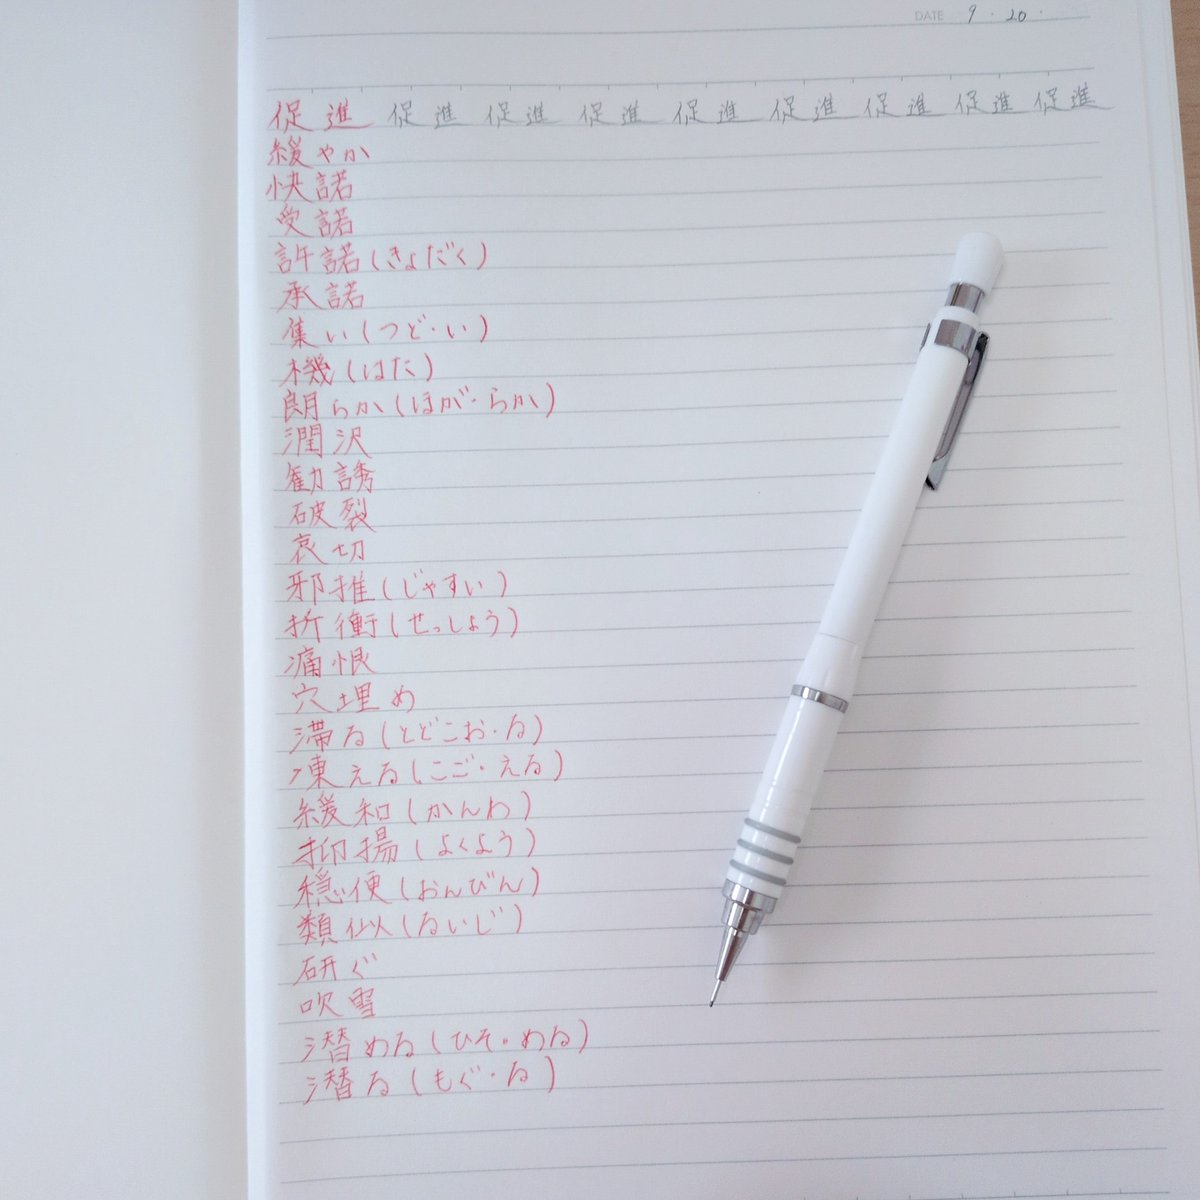 DATE 9・20・
促進 促進 促進 促進 促進 促進 促進 促進 促進
緩やか
快諾
受諾
許諾(きょだく)
承諾
集い(つど・い)
機(はた)
朗らか(ほが・らか)
潤沢
勧誘
破裂
哀切
邪推(じゃすい)
折衝(せっしょう)
痛恨
穴埋め
滞る(とどこお・る)
凍える(こご・える)
緩和(かんわ)
抑揚(よくよう)
穏便(おんびん)
類似(るいじ)
研ぐ
吹雪
潜める(ひそ・める)
潜る(もぐ・る)